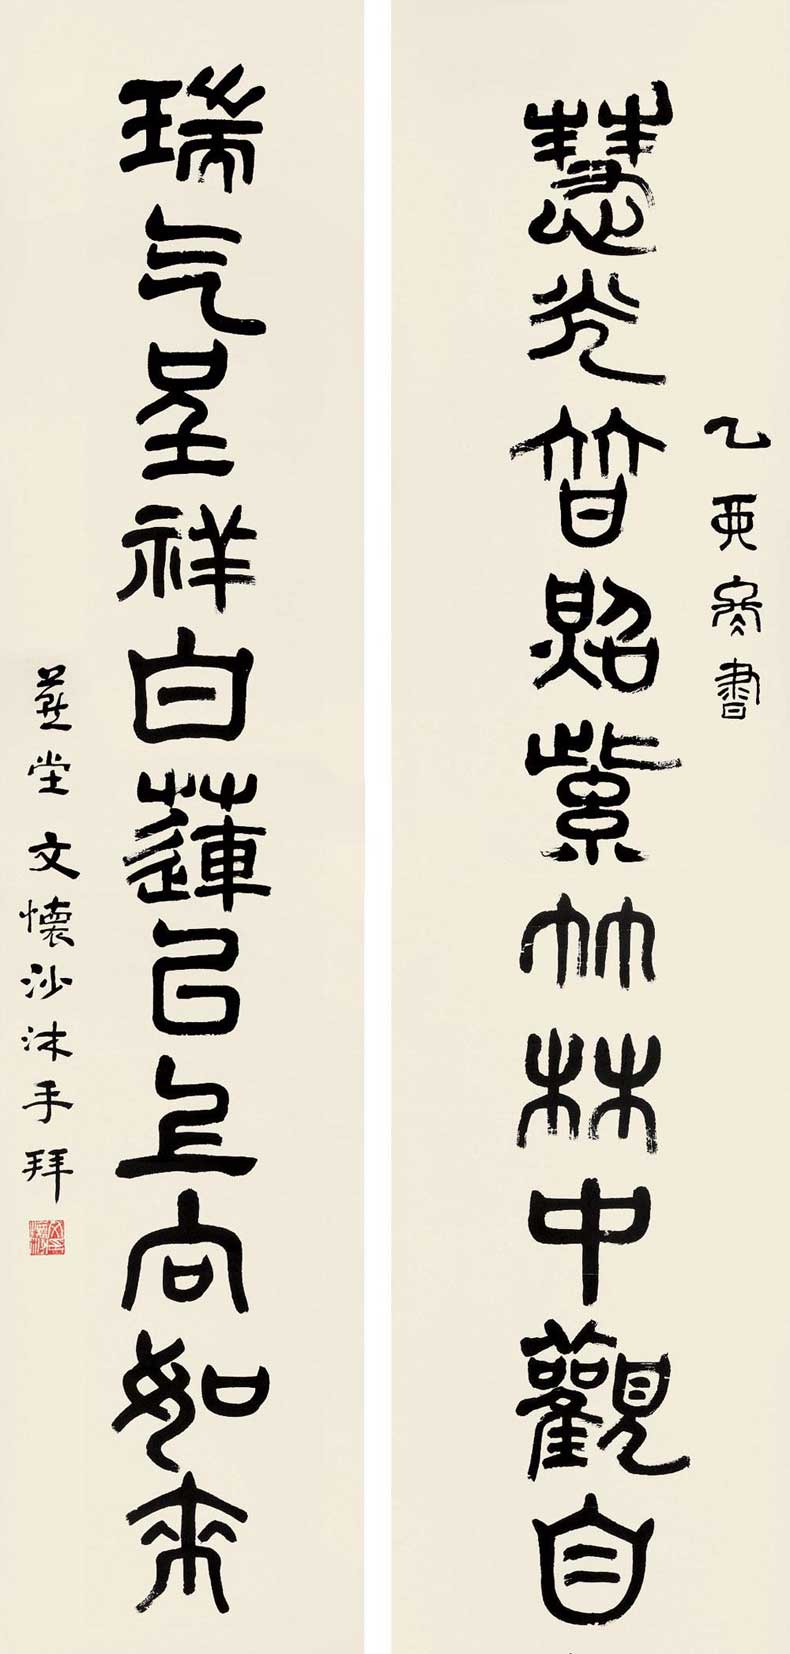 乙亥冬書
慧光普照紫竹林中觀自
瑞气呈祥白蓮台上向如来
燕堂文懷沙沐手拜